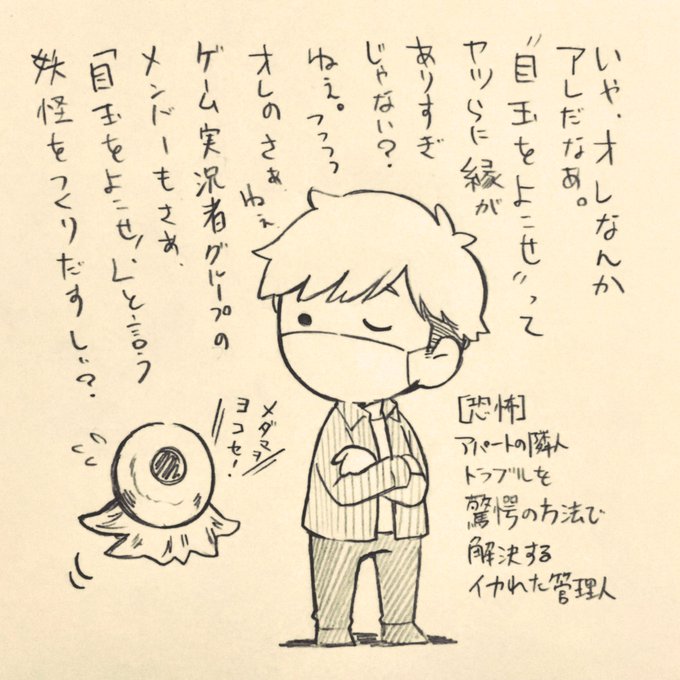 いや、オレなんか
アレだなあ。
"目玉をよこせ"って
ヤツらに縁が
ありすぎ
じゃない？
ねぇ。フフフッ
オレのさぁ、ねぇ
ゲーム実況者グループの
メンバーもさぁ、
「目玉をよこせ!」と言う
妖怪をつくりだすしぃ？
メダマヲ
ヨコセ!
[恐怖]
アパートの隣人
トラブルを
驚愕の方法で
解決する
イカれた管理人